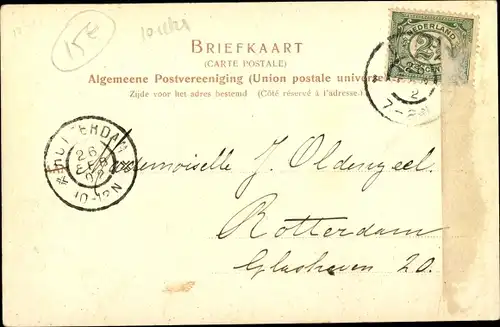 15€
BRIEFKAART
(CARTE POSTALE)
Algemeene Postvereeniging (Union postale universelle)
Zijde voor het adres bestemd (Côté réservé à l'adresse.)
NEDERLAND
2½
CENT
ROTTERDAM
26
FEB
02
10-12N
Mademoiselle J. Oldenzeel.
Rotterdam
Glashaven 20.